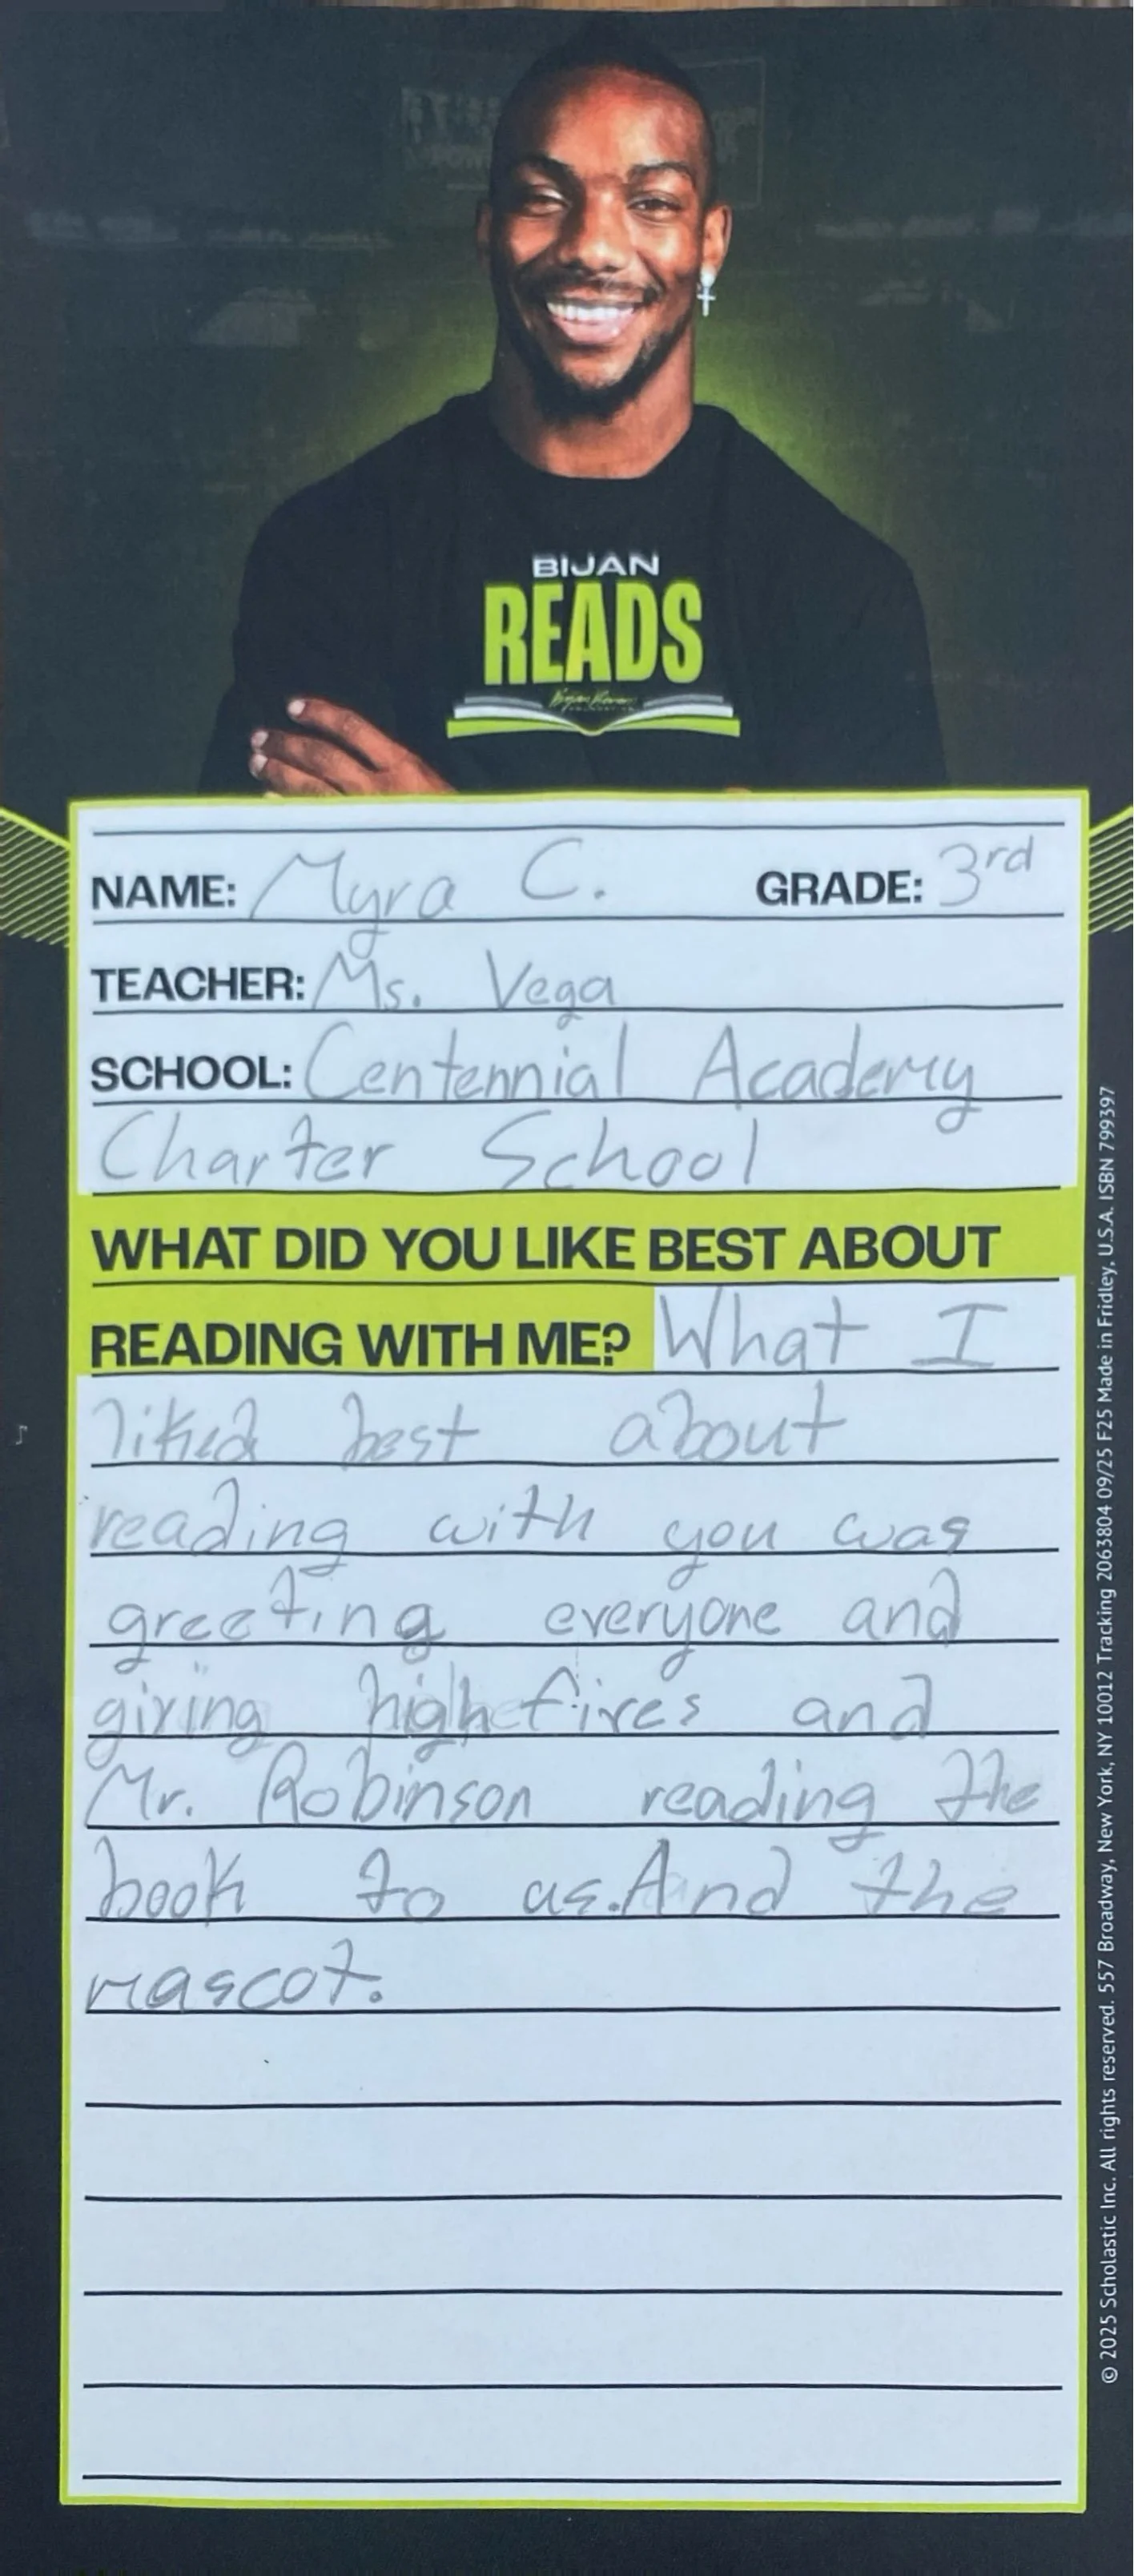 BIJAN
READS
NAME: Myra C. GRADE: 3rd
TEACHER: Ms. Vega
SCHOOL: Centennial Academy
Charter School
WHAT DID YOU LIKE BEST ABOUT
READING WITH ME? What I
liked best about
reading with you was
greeting everyone and
giving high fives and
Mr. Robinson reading the
book to us. And the
mascot.
© 2025 Scholastic Inc. All rights reserved. 557 Broadway, New York, NY 10012 Tracking 2063804 09/25 F25 Made in Fridley, U.S.A. ISBN 799397